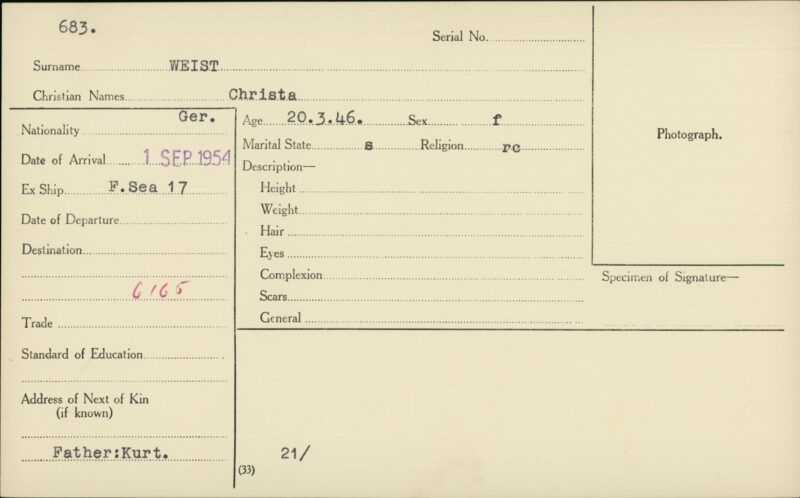 683.
Serial No.
Surname WEIST
Christian Names Christa
Nationality Ger.
Date of Arrival 1 SEP 1954
Ex Ship F.Sea 17
Date of Departure
Destination
6165
Trade
Standard of Education
Address of Next of Kin
(if known)
Father:Kurt.
Age 20.3.46. Sex f
Marital State s Religion rc
Description—
Height
Weight
Hair
Eyes
Complexion
Scars
General
21/
(33)
Photograph.
Specimen of Signature—